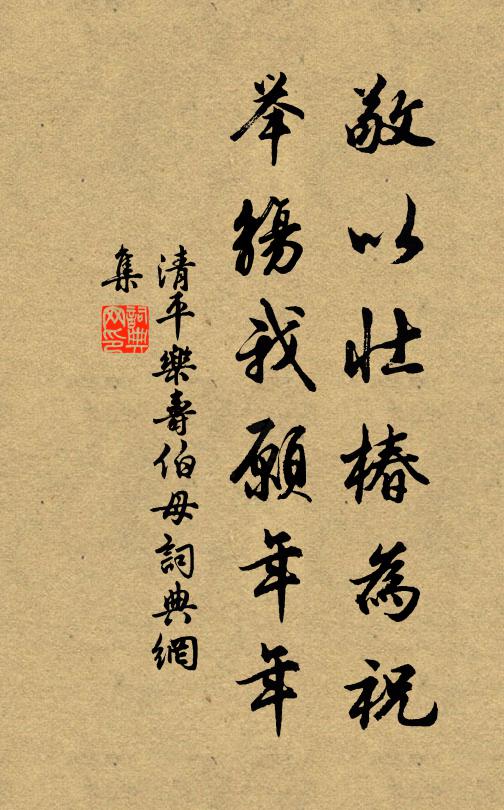 敬以壯椿為祝
举觴我願年年
清平樂壽伯母詞典網
集
詞典网印